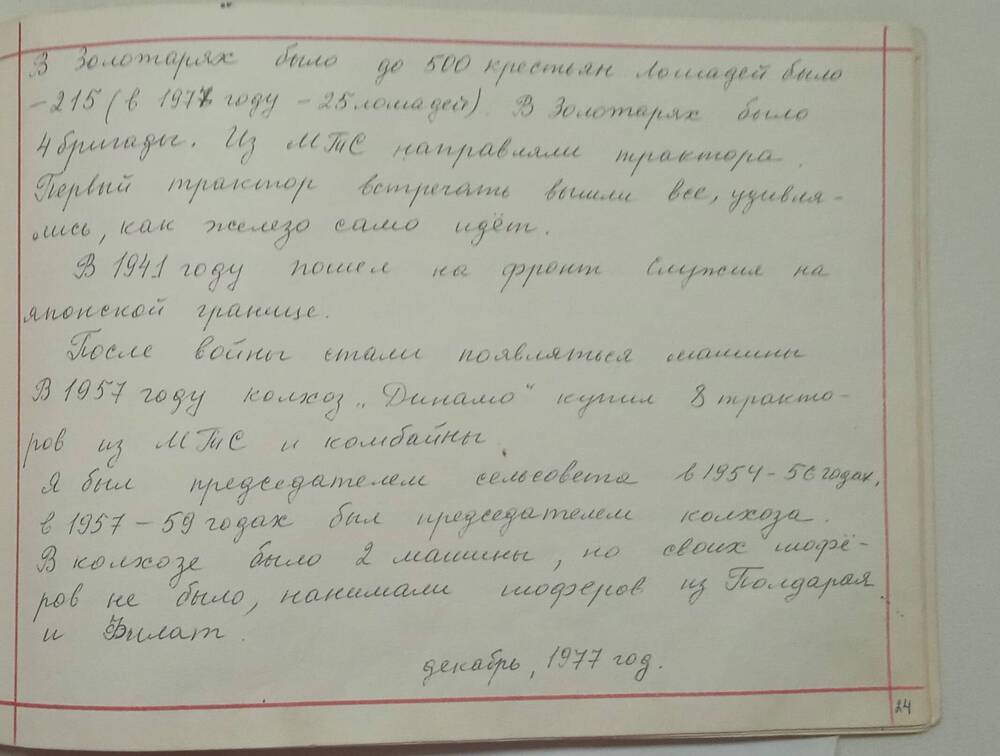 В Золотарях было до 500 крестьян Лошадей было
– 215 (в 1977 году – 25 лошадей). В Золотарях было
4 бригады. Из МТС направляли трактора.
Первый трактор встречать вышли все, удивля-
лись, как железо само идёт.
В 1941 году пошел на фронт Служил на
японской границе.
После войны стали появляться машины
В 1957 году колхоз „Динамо“ купил 8 тракто-
ров из МТС и комбайны.
Я был председателем сельсовета в 1954–56 годах,
в 1957–59 годах был председателем колхоза.
В колхозе было 2 машины, но своих шофё-
ров не было, нанимали шоферов из Полдарая
и Вилат.
декабрь, 1977 год.
24